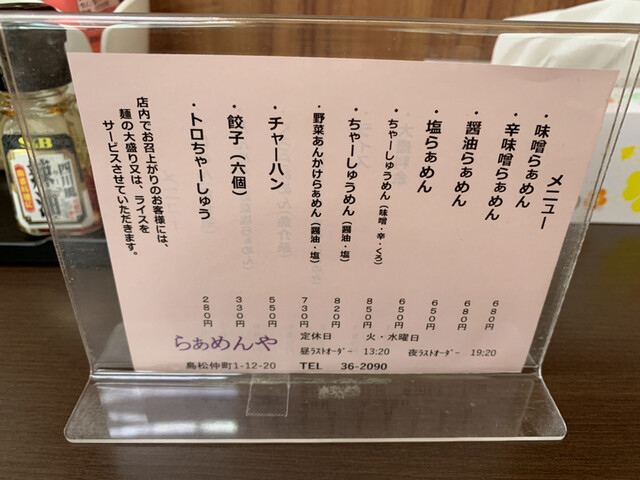 メニュー
・味噌らぁめん 680円
・辛味噌らぁめん 680円
・醤油らぁめん 650円
・塩らぁめん 650円
・ちゃーしゅうめん（味噌・辛・くろ） 850円
・ちゃーしゅうめん（醤油・塩） 820円
・野菜あんかけらぁめん（醤油・塩） 730円
・チャーハン 550円
・餃子（六個） 330円
・トロちゃーしゅう 280円
店内でお召上がりのお客様には、
麺の大盛り又は、ライスを
サービスさせていただきます。
らぁめんや
定休日 火・水曜日
昼ﾗｽﾄｵｰﾀﾞｰ 13:20 夜ﾗｽﾄｵｰﾀﾞｰ 19:20
島松仲町1-12-20 TEL 36-2090
S&B